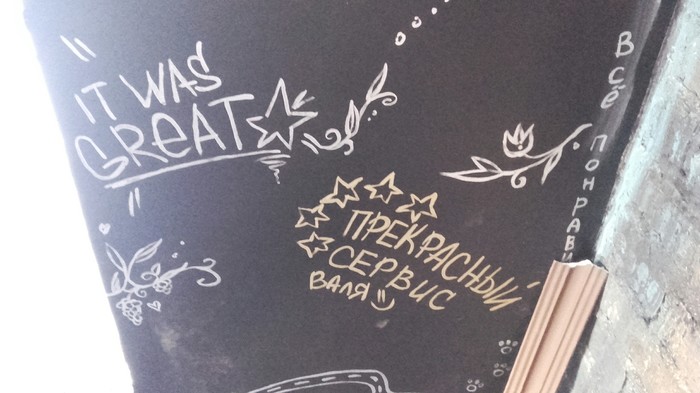 "IT WAS
GREAT"
ПРЕКРАСНЫЙ
СЕРВИС
ВАЛЯ =)
ВСЁ ПОНРАВИ